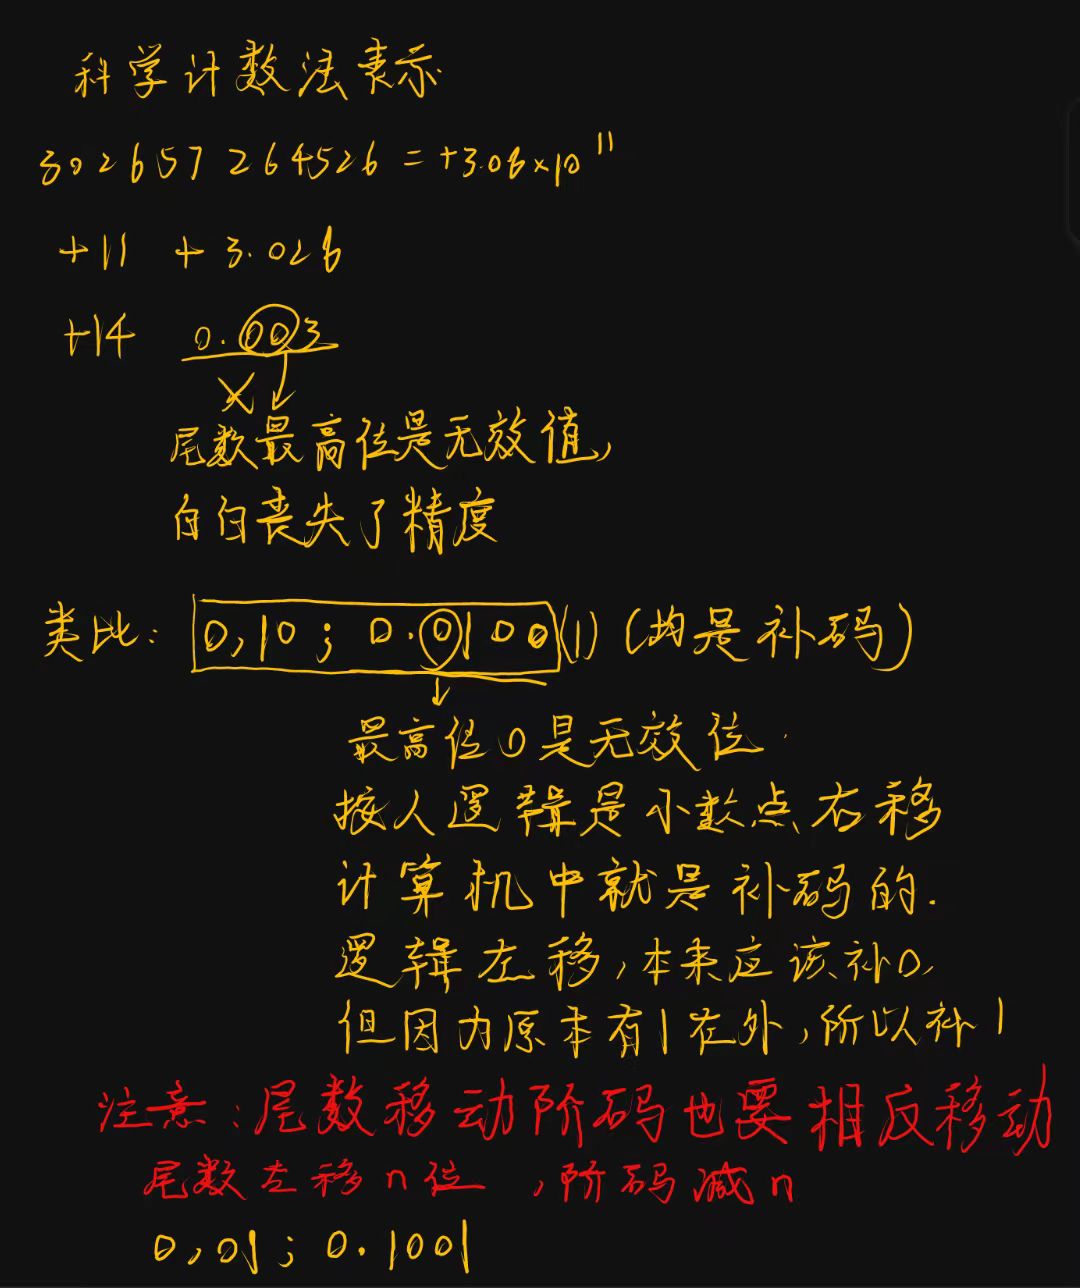 科学计数法表示
302657264526=+3.06×10^11
+11 +3.026
+14 0.003
尾数最高位是无效值,
白白丧失了精度
类比: 0,10; 0.0100(1) (均是补码)
最高位0是无效位.
按人逻辑是小数点右移
计算机中就是补码的.
逻辑左移,本来应该补0,
但因为原本有1在外,所以补1
注意:尾数移动阶码也要相反移动
尾数左移n位,阶码减n
0,01; 0.1001